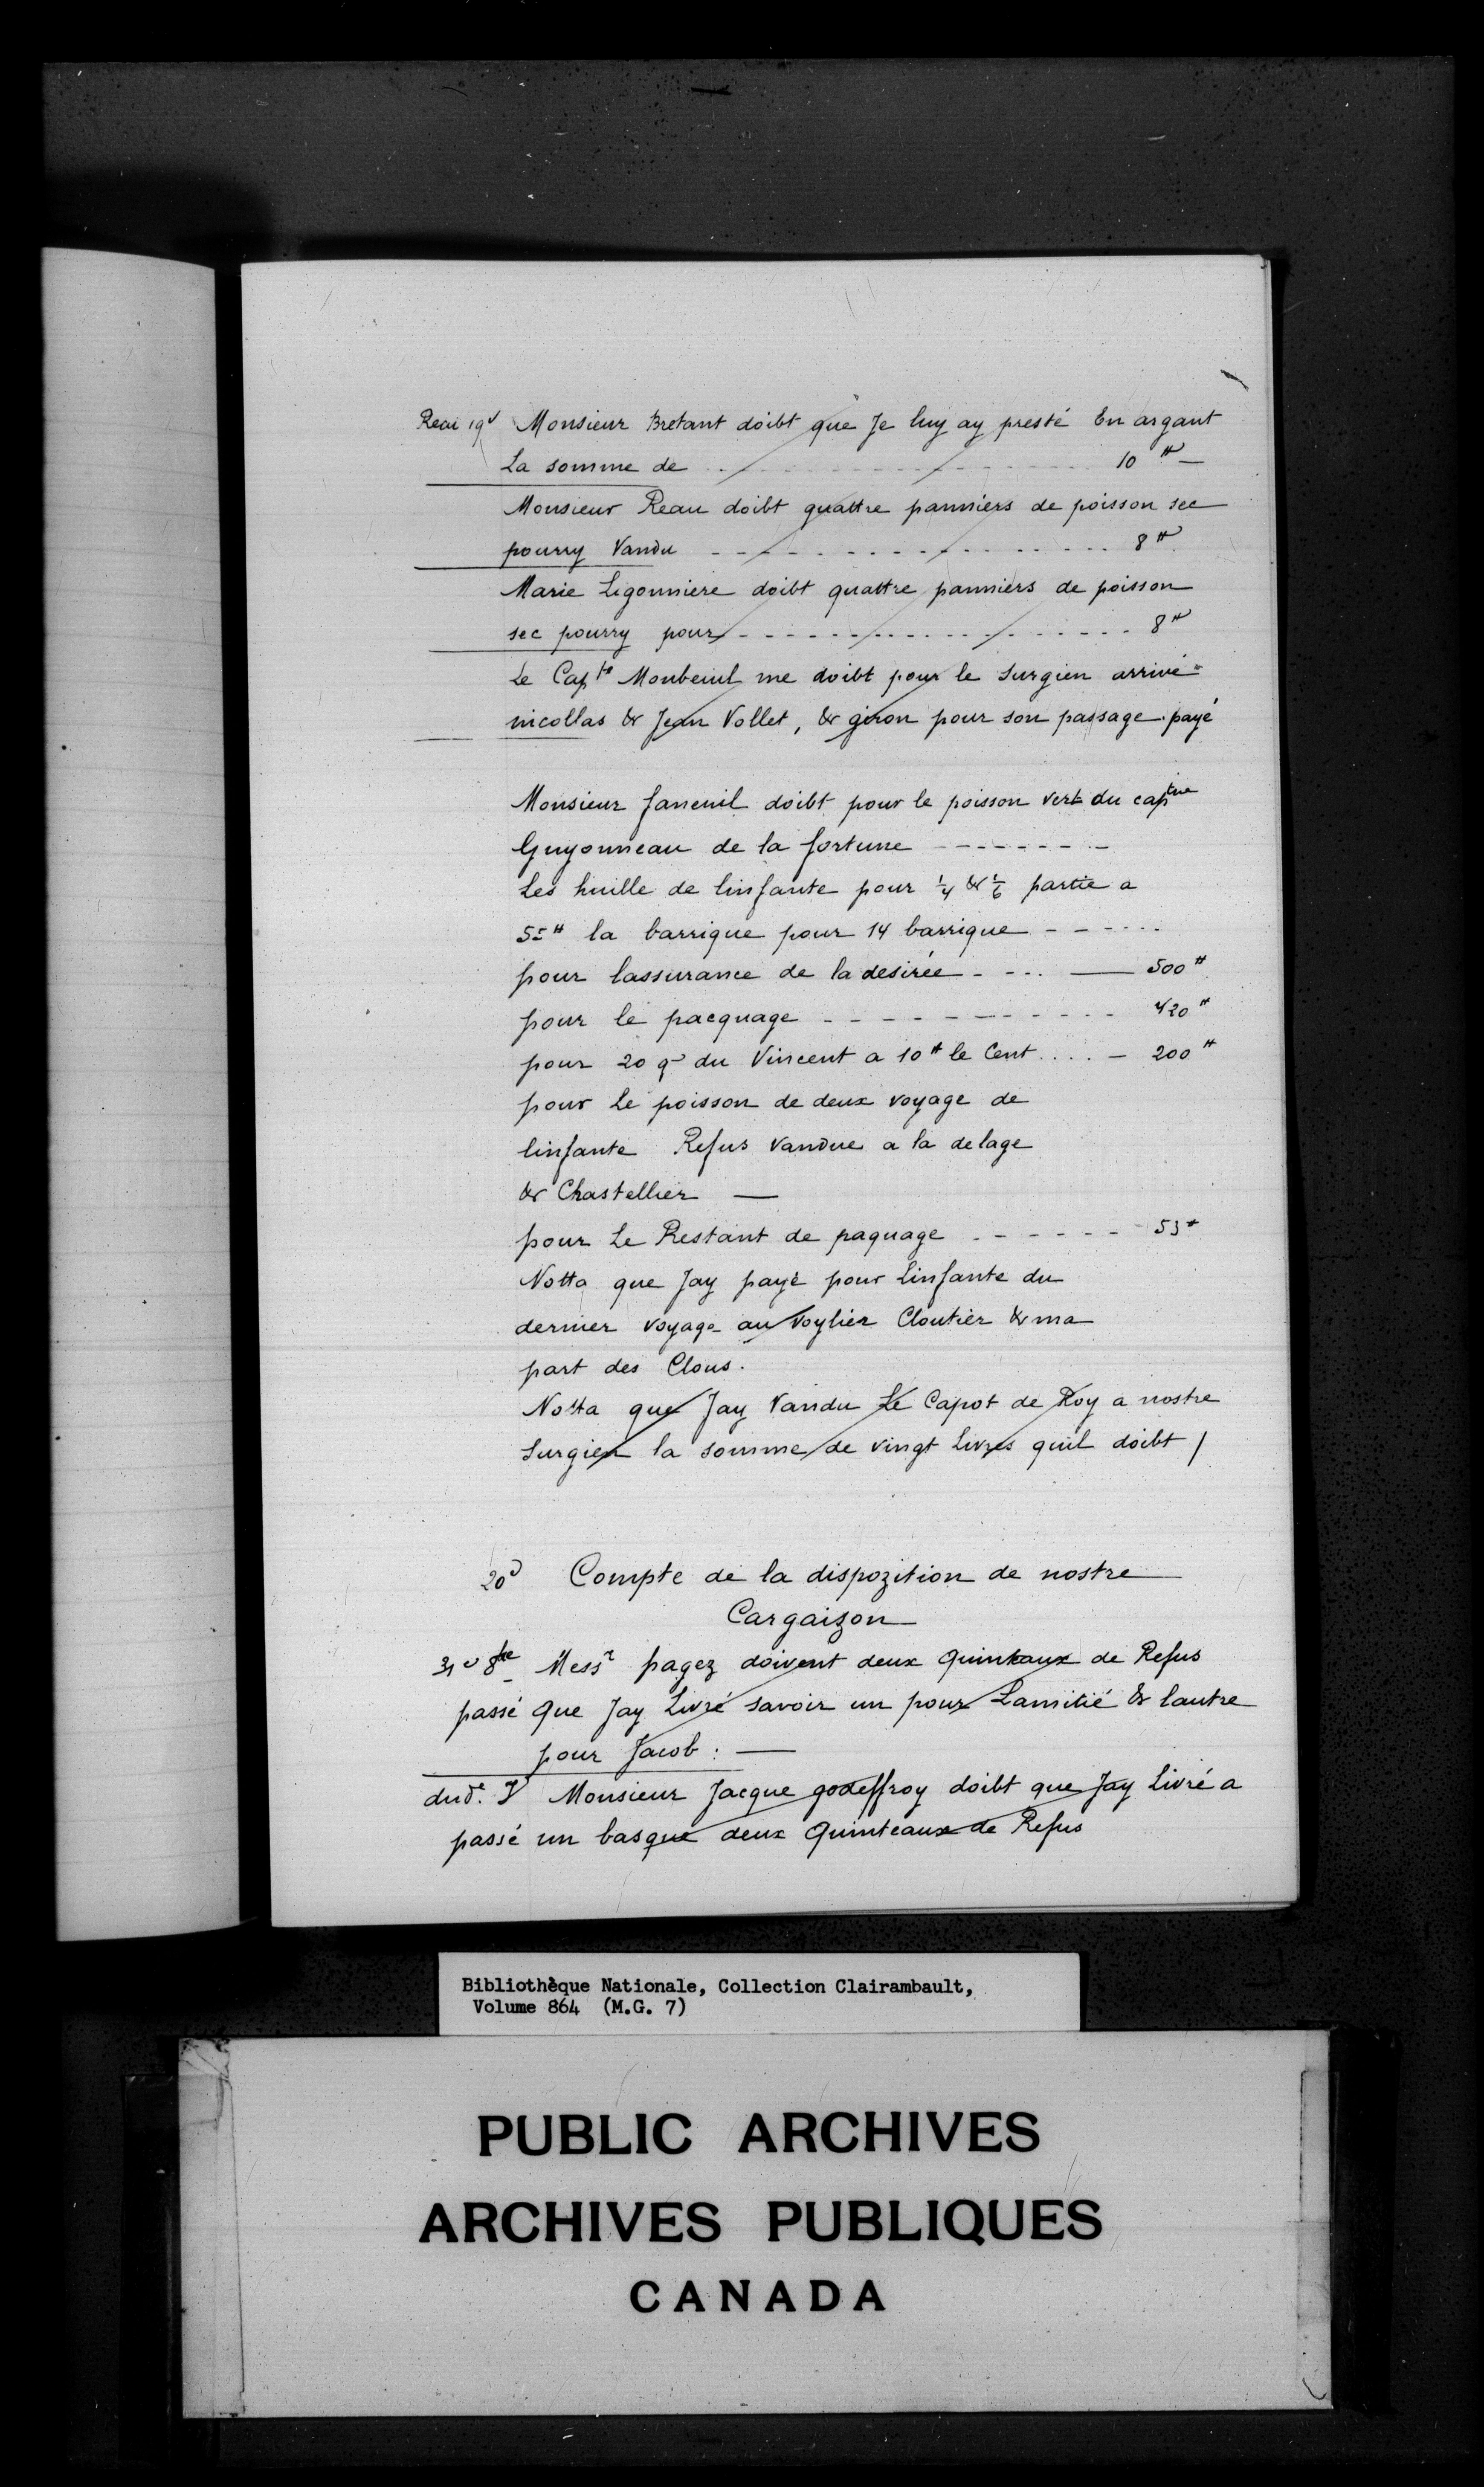 Reau 19v Monsieur Bretant doibt que Je luy ay presté En argant
La somme de 10 ₶
Monsieur Reau doibt quattre panniers de poisson sec
pourry Vandu 8 ₶
Marie Ligonniere doibt quattre panniers de poisson
sec pourry pour 8 ₶
Le Capne Monbeuil me doibt pour le surgien arrivé
nicollas & Jean Vollet, & giron pour son passage payé
Monsieur faneuil doibt pour le poisson vert du captne
Guyonneau de la fortune
Les huille de linfante pour 1/4 & 1/6 partie a
55 ₶ la barrique pour 14 barrique
pour lassurance de la desirée 500 ₶
pour le pacquage 420 ₶
pour 20 q du Vincent a 10 ₶ le Cent 200 ₶
pour Le poisson de deux voyage de
linfante Refus Vandue a la delage
& Chastellier —
pour Le Restant de paquage 53 ₶
Notta que Jay payé pour Linfante du
dernier voyage au voylier Cloutier & ma
part des Clous.
Notta que Jay Vandu Le Capot de Roy a nostre
Surgien la somme de vingt Livres quil doibt /
20 Compte de la dispozition de nostre
Cargaizon
31 8bre Messr pagez doivent deux Quintaux de Refus
passé Que Jay Livré savoir un pour Lamitié & lautre
pour Jacob : —
dud. J Monsieur Jacque godeffroy doibt que Jay Livré a
passé un basque deux Quinteaux de Refus
Bibliothèque Nationale, Collection Clairambault,
Volume 864 (M.G. 7)
PUBLIC ARCHIVES
ARCHIVES PUBLIQUES
CANADA